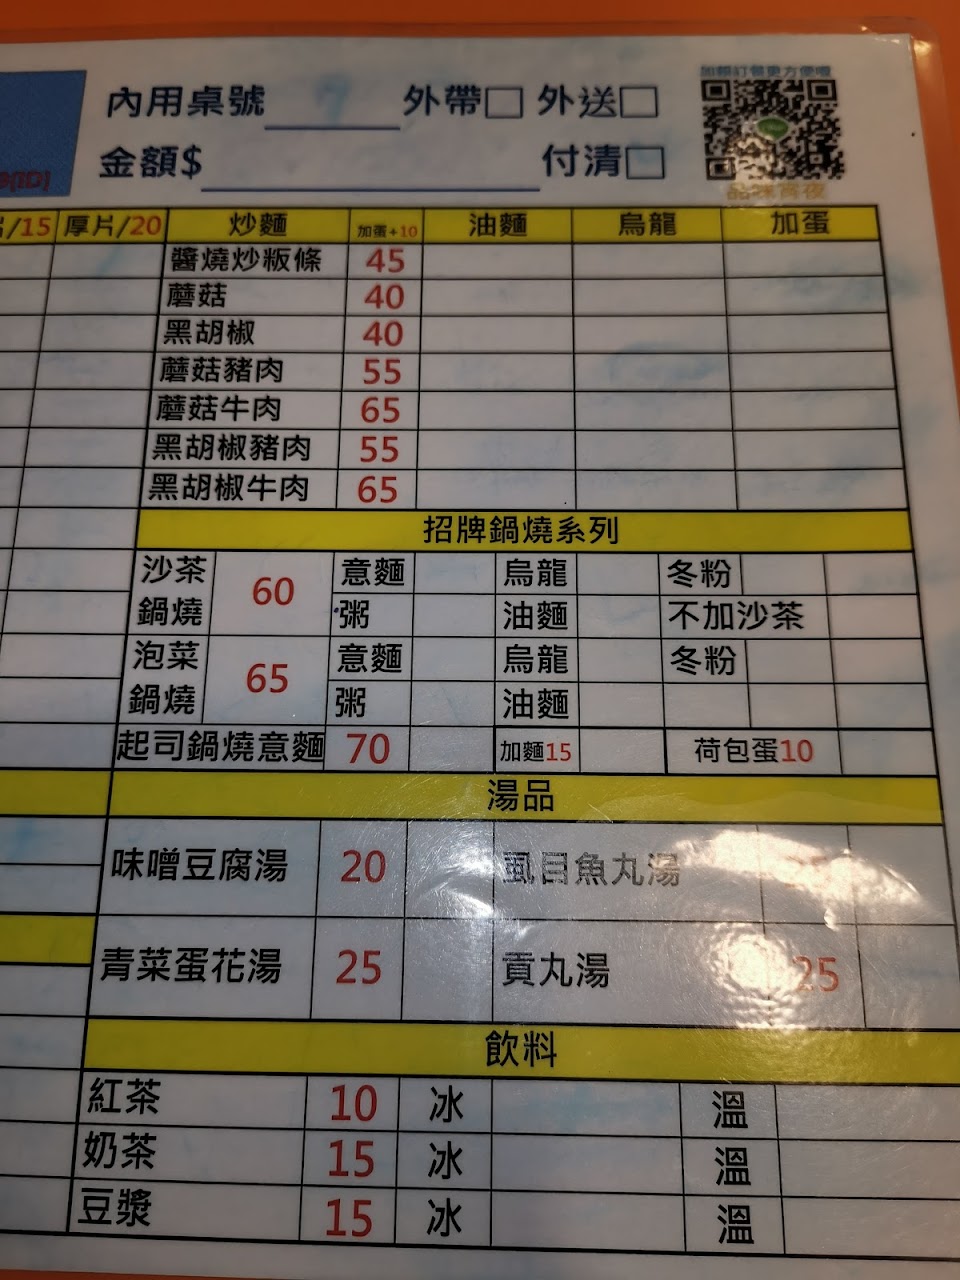 內用桌號 7 外帶□ 外送□
金額$ 付清□
/15 厚片/20 炒麵 加蛋+10 油麵 烏龍 加蛋
醬燒炒粄條 45
蘑菇 40
黑胡椒 40
蘑菇豬肉 55
蘑菇牛肉 65
黑胡椒豬肉 55
黑胡椒牛肉 65
招牌鍋燒系列
沙茶鍋燒 60 意麵 烏龍 冬粉
粥 油麵 不加沙茶
泡菜鍋燒 65 意麵 烏龍 冬粉
粥 油麵
起司鍋燒意麵 70 加麵15 荷包蛋10
湯品
味噌豆腐湯 20 虱目魚丸湯
青菜蛋花湯 25 貢丸湯 25
飲料
紅茶 10 冰 溫
奶茶 15 冰 溫
豆漿 15 冰 溫